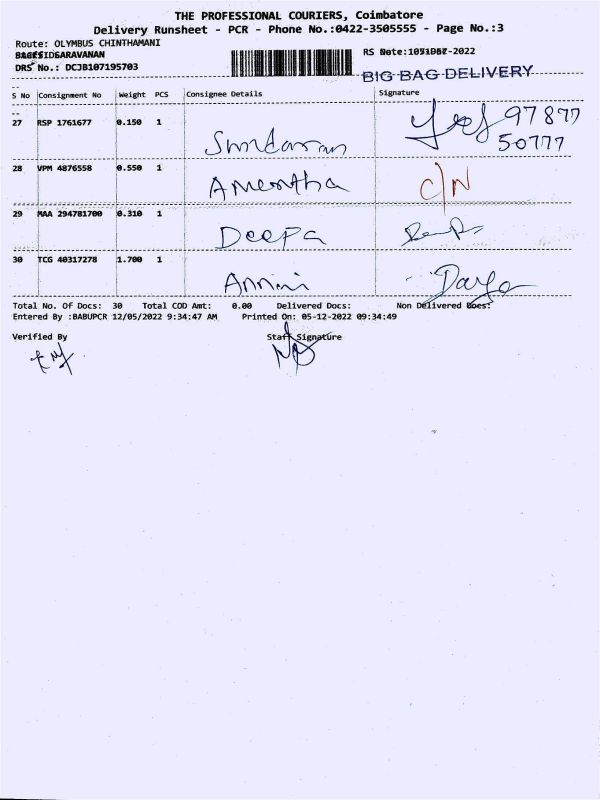 THE PROFESSIONAL COURIERS, Coimbatore
Delivery Runsheet - PCR - Phone No.:0422-3505555 - Page No.:3
Route: OLYMBUS CHINTHAMANI
DRS No.: DCJB107195703
BIG BAG DELIVERY
S No Consignment No Weight PCS Consignee Details Signature
27 RSP 1761677 0.150 1 97877
50777
28 VPM 4876558 0.550 1 Amentha C/N
29 MAA 294781700 0.310 1 Deepa
30 TCG 40317278 1.700 1
Total No. Of Docs: 30 Total COD Amt: 0.00 Delivered Docs: Non Delivered Docs:
Entered By :BABUPCR 12/05/2022 9:34:47 AM Printed On: 05-12-2022 09:34:49
Verified By Staff Signature